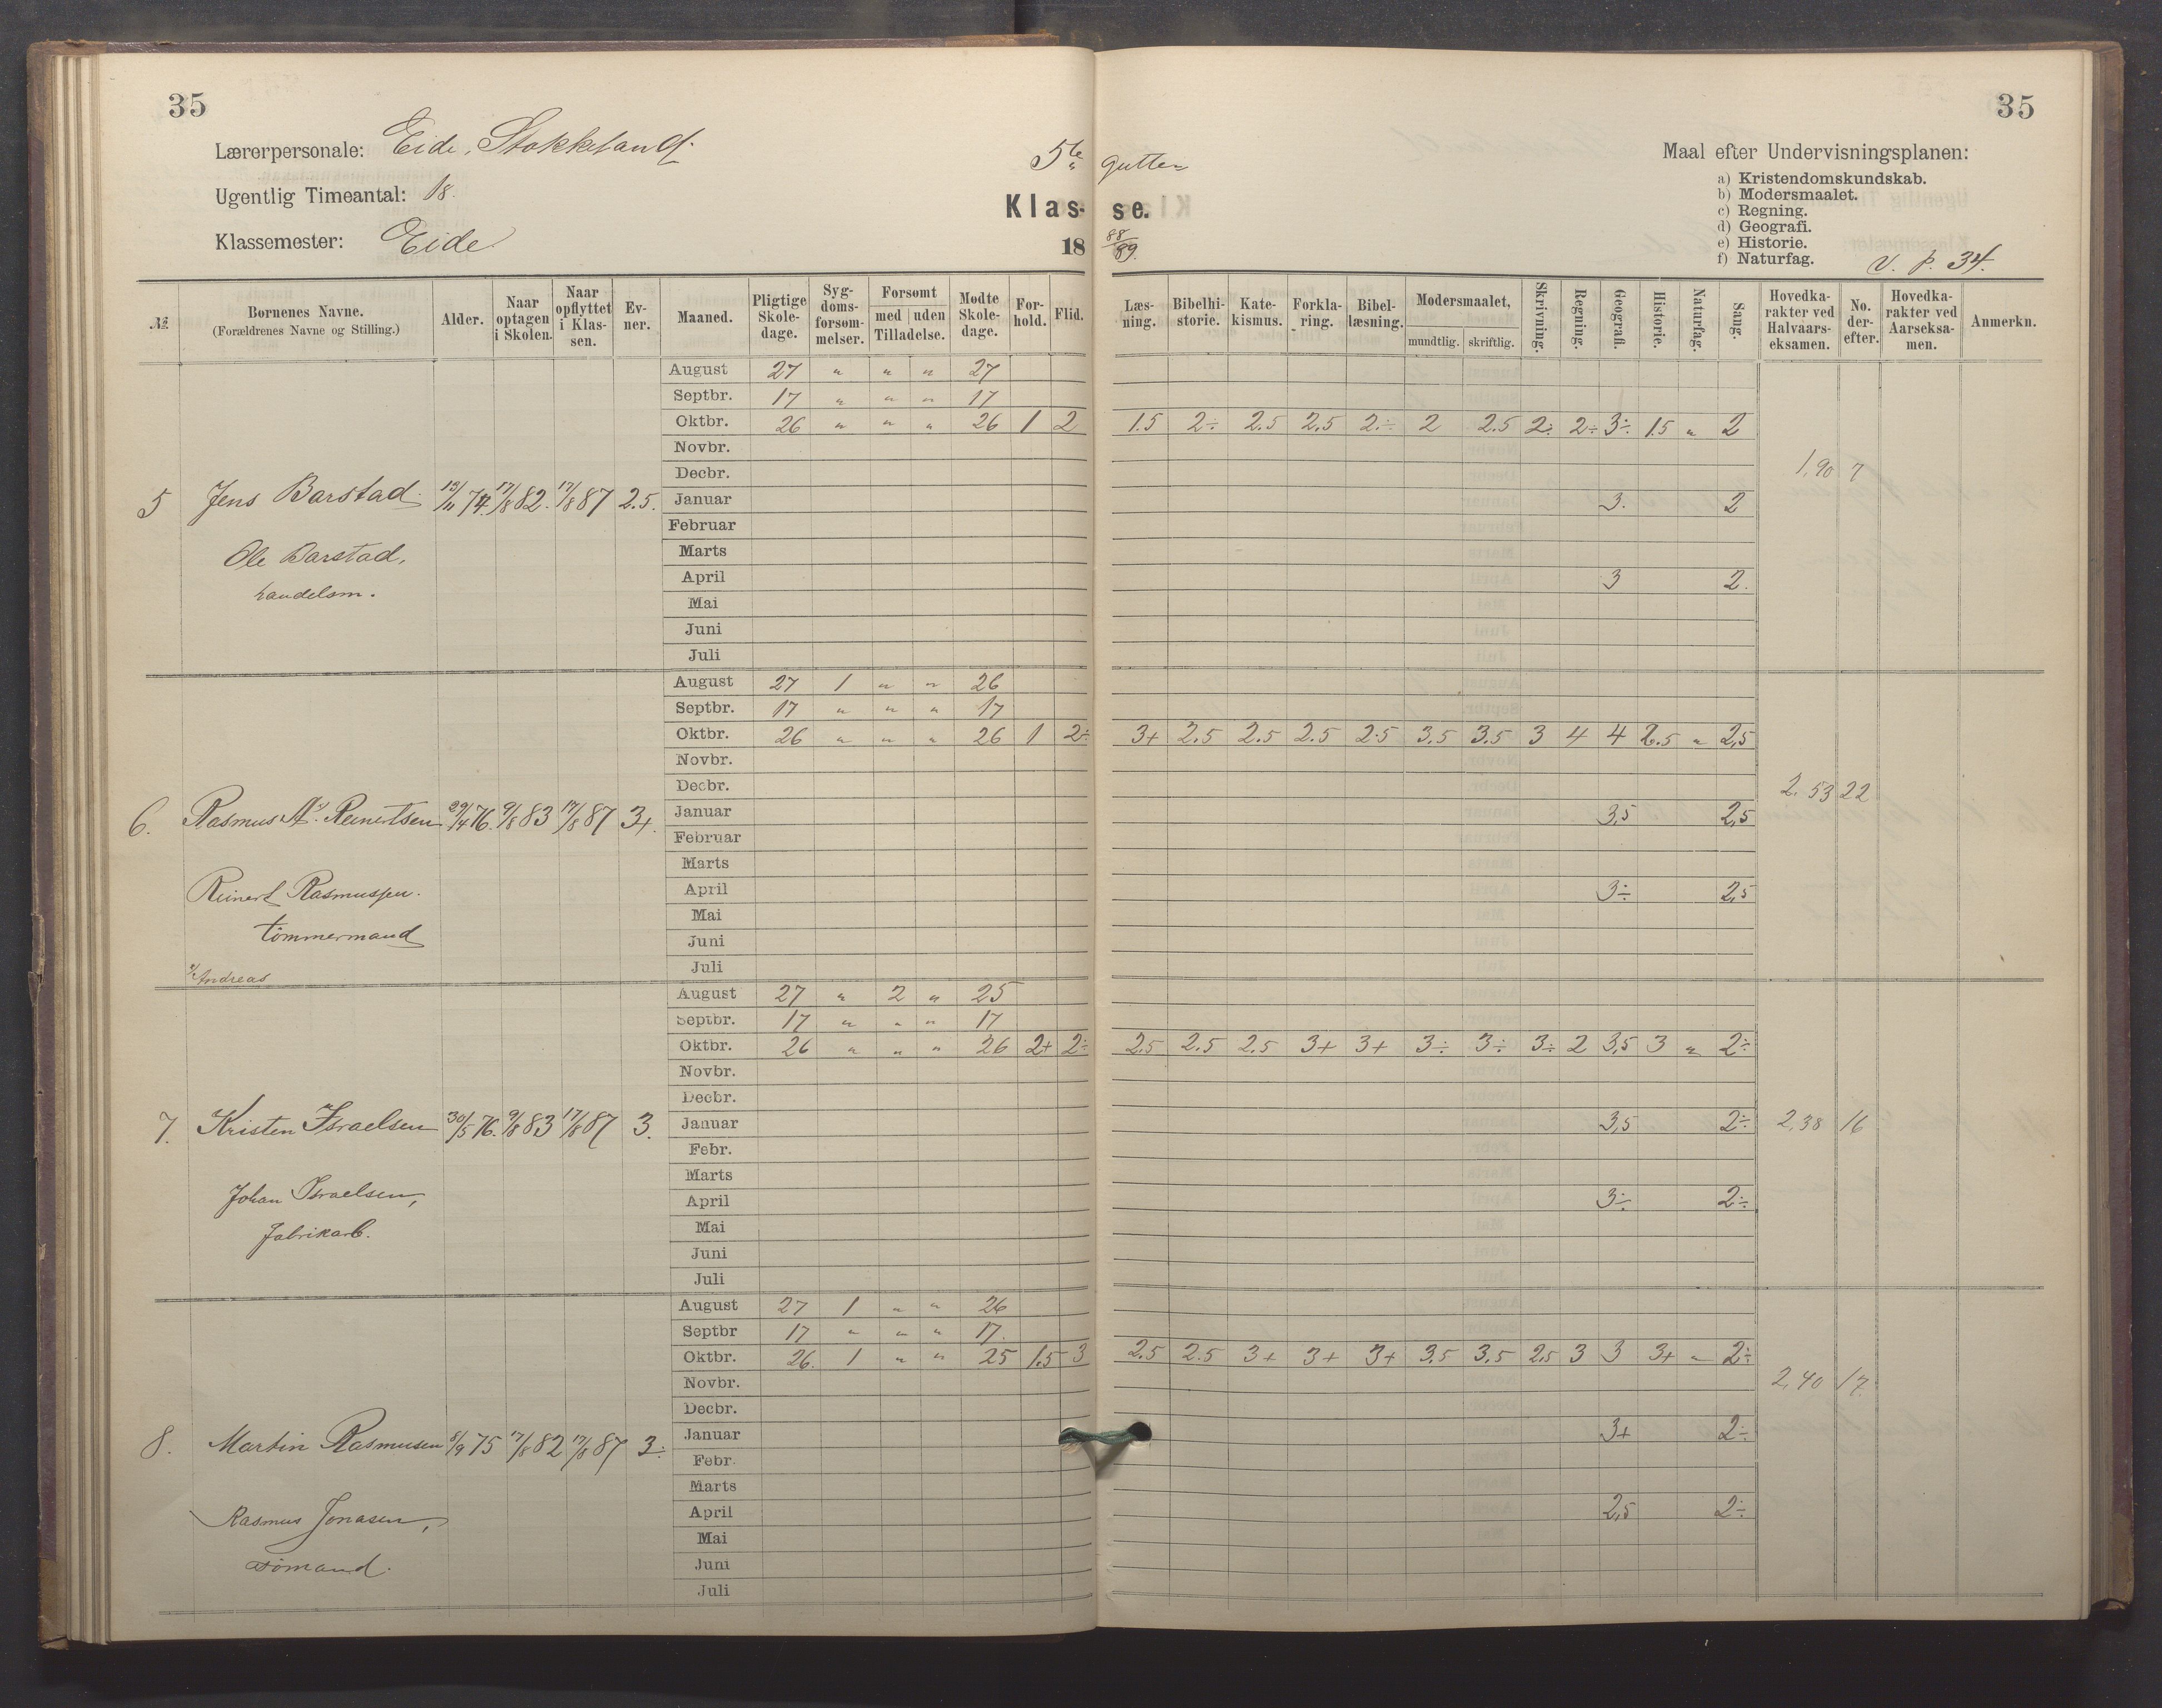 35
35
Lærerpersonale: Eide, Stokkeland.
Ugentlig Timeantal: 18.
Klassemester: Eide
5te gutter
Klas- se.
18 88/89.
Maal efter Undervisningsplanen:
a) Kristendomskundskab.
b) Modersmaalet.
c) Regning.
d) Geografi.
e) Historie.
f) Naturfag.
V. p. 34.
№ | Børnenes Navne. (Forældrenes Navne og Stilling.) | Alder. | Naar optagen i Skolen. | Naar opflyttet i Klassen. | Evner. | Maaned. | Pligtige Skoledage. | Sygdomsforsømmelser. | Forsømt med Tilladelse. | uden Tilladelse. | Mødte Skoledage. | Forhold. | Flid. | Læsning. | Bibelhistorie. | Katekismus. | Forklaring. | Bibellæsning. | Modersmaalet, mundtlig. | skriftlig. | Skrivning. | Regning. | Geografi. | Historie. | Naturfag. | Sang. | Hovedkarakter ved Halvaarseksamen. | No. derefter. | Hovedkarakter ved Aarseksamen. | Anmerkn.
5 Jens Barstad. 19/11 74. 17/8 82. 17/8 87 2.5.
Ole Barstad,
handelsm.
August 27 " " " 27
Septbr. 17 " " " 17
Oktbr. 26 " " " 26 1 2 1.5 2÷ 2.5 2,5 2÷ 2 2.5 2÷ 2÷ 3÷ 1.5 " 2
Novbr.
Decbr. 1,90 7
Januar 3. 2
Februar
Marts
April 3 2.
Mai
Juni
Juli
6. Rasmus A.x) Reinertsen 29/4 76. 9/8 83 17/8 87 3+.
Reinert Rasmussen.
tömmermand
x) Andreas
August 27 1 " " 26
Septbr. 17 " " " 17
Oktbr. 26 " " " 26 1 2÷ 3+ 2.5 2.5 2.5 2.5 3.5 3.5 3 4 4 2.5 " 2,5
Novbr.
Decbr. 2.53 22
Januar 3,5 2,5
Februar
Marts
April 3÷ 2,5
Mai
Juni
Juli
7. Kristen Israelsen 30/5 76. 9/8 83 17/8 87 3.
Johan Israelsen,
fabrikarb.
August 27 " 2 " 25
Septbr. 17 " " " 17
Oktbr. 26 " " " 26 2+ 2÷ 2.5 2.5 2.5 3+ 3+ 3÷ 3÷ 3÷ 2 3,5 3 " 2÷
Novbr.
Decbr.
Januar 3,5 2÷ 2,38 16
Febr.
Marts
April 3÷ 2÷
Mai
Juni
Juli
8. Martin Rasmusen 8/9 75 17/8 82 17/8 87 3÷
Rasmus Jonasen,
sømand.
August 27 1 " " 26
Septbr 17 " " " 17.
Oktbr. 26. 1 " " 25 1.5 3 2.5 2.5 3+ 3+ 3+ 3.5 3,5 2,5 3 3 3+ " 2÷
Novbr. 2,40 17
Decbr.
Januar 3+ 2÷
Febr.
Marts
April 2,5 2÷
Mai
Juni
Juli